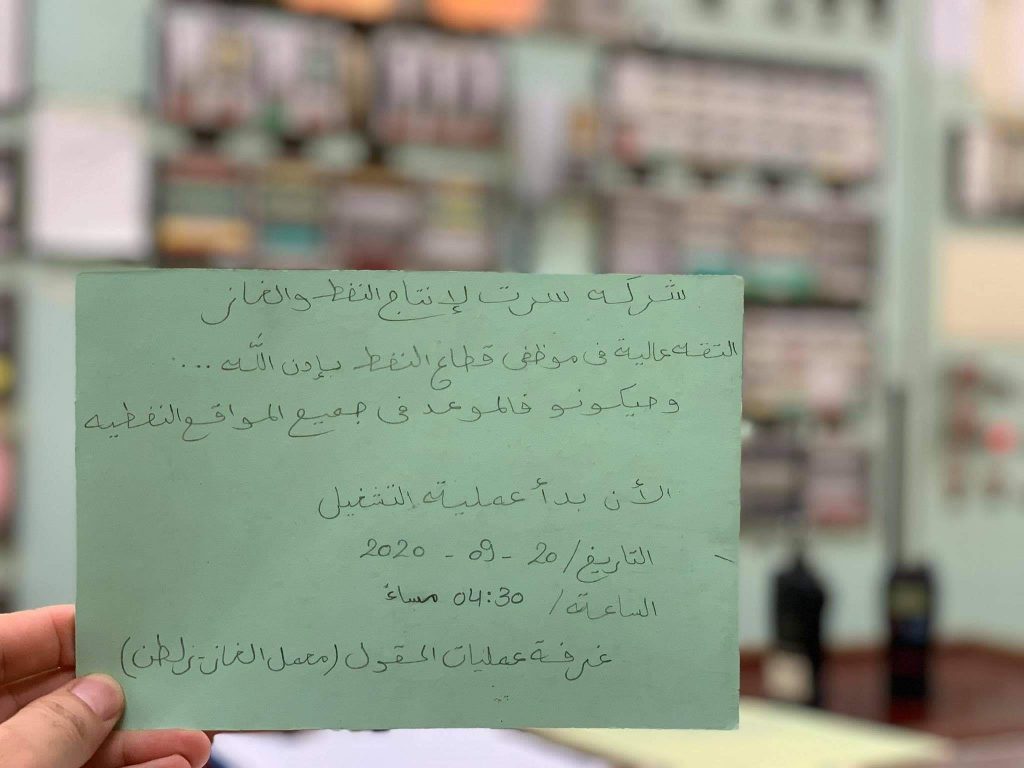 شركه سرت لإنتاج النفط والغاز
التقه عالية فى موظفى قطاع النفط بإذن اللّه ...
وحيكونو فالموعد فى جميع المواقع النفطيه
الأن بدأ عملية التشغيل
التاريخ/ 20 - 09 - 2020
الساعة/ 04:30 مساءً
غرفة عمليات الحقول (معمل الغاز-زلطن)